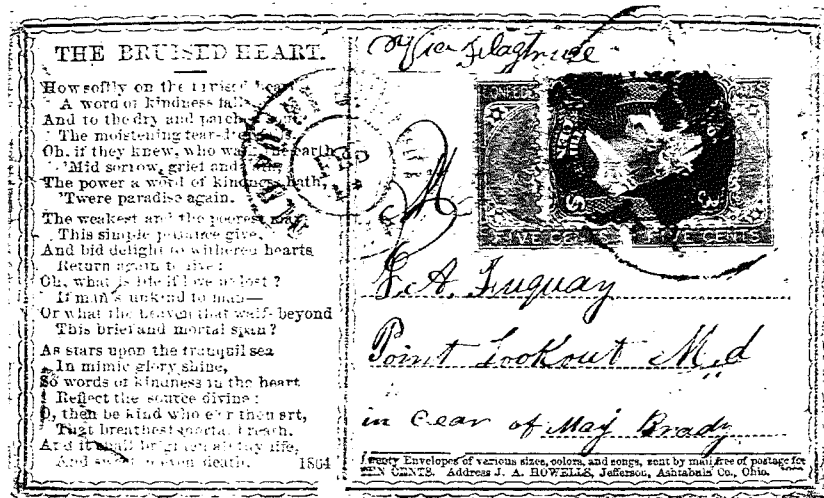 THE BRUISED HEART.
How softly on the bruised
A word of kindness
And to the dry and
The moistening
Oh, if they knew, who
'Mid sorrow, grief and
The power a word of kindness hath,
'Twere paradise again.
The weakest and the poorest
This simple pittance give,
And bid delight to withered hearts
Return again to live:
Oh, what is life if love be lost?
If man's unkind to man—
Or what the heaven that waits beyond
This brief and mortal span?
As stars upon the tranquil sea
In mimic glory shine,
So words of kindness in the heart
Reflect the source divine:
O, then be kind who e'er thou art,
That breathest mortal breath,
And it shall brighten all thy life,
And sweeten even death.
1864
Via Flagtruce
FIVE CENTS
FIVE CENTS
A. Fuquay
Point Lookout Md
in Cear of Maj Brady
Twenty Envelopes of various sizes, colors, and songs, sent by mail free of postage for
TEN CENTS. Address J. A. HOWELLS, Jefferson, Ashtabula Co., Ohio.